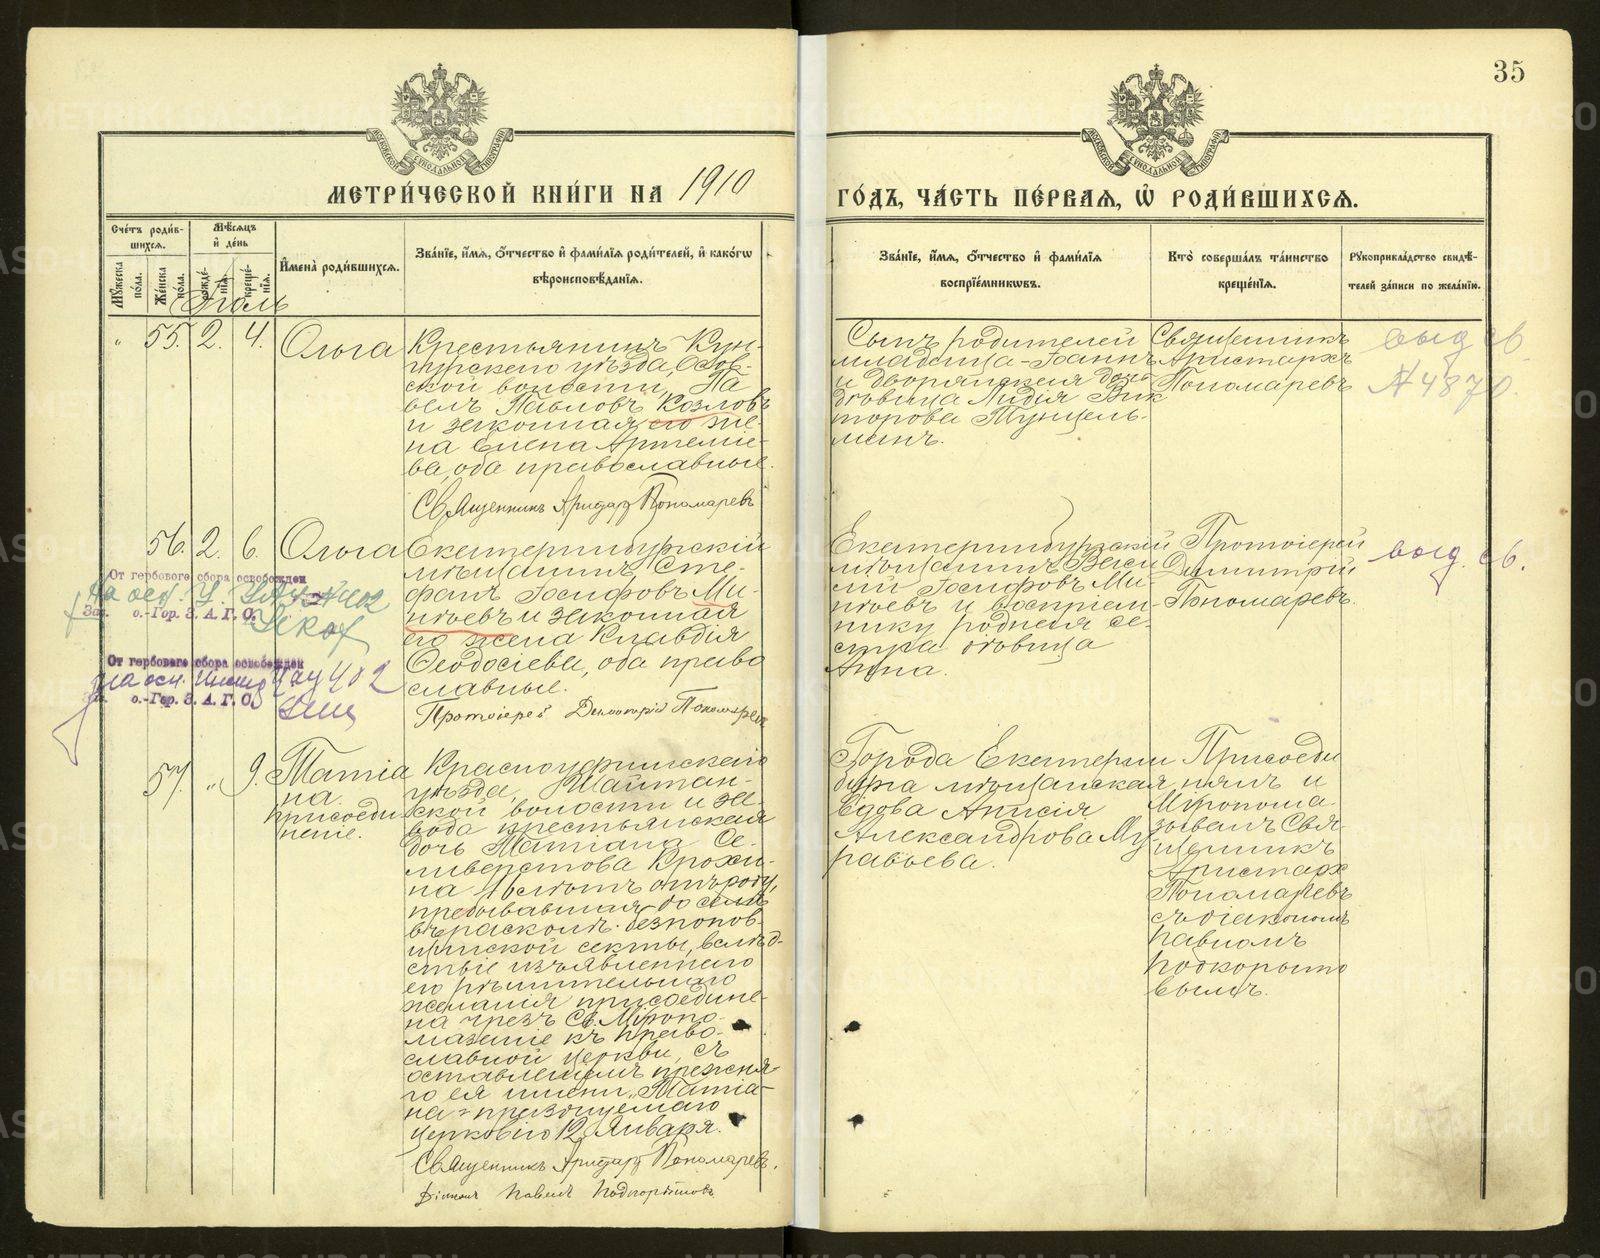 35
МЕТРИ́ЧЕСКОЙ КНИ́ГИ НА 1910
ГО́ДЪ, ЧА́СТЬ ПЕ́РВАЯ, Ѡ҆ РОДИ́ВШИХСЯ.
Сче́тъ роди́в-
шихся.
Мѣ́сяцъ
и҆ де́нь
Мꙋ́жеска
по́ла.
Же́нска
по́ла.
рожде́-
нїѧ.
креще́-
нїѧ.
И҆мена̀ роди́вшихся.
Зва́нїе, и҆́мя, ѻ҆́тчество и҆ фами́лїя роди́телей, и҆ како́гѡ
вѣроисповѣ́данїя.
Зва́нїе, и҆́мя, ѻ҆́тчество и҆ фами́лїя
воспрїе́мникѡвъ.
Кто̀ соверша́лъ та́инство
креще́нїя.
Рꙋкоприкла́дство свидѣ́-
телей за́писи по жела́нїю.
Іюль
" 55. 2. 4. Ольга
Крестьянинъ Кун-
гурскаго уѣзда, Осов-
ской волости Па
велъ Павловъ Козловъ
и законная его же-
на Елена Артеміе-
ва, оба православные.
Священникъ Аристархъ Пономаревъ
Сынъ родителей
младенца - Іоаннъ
и дворянская дочь
дѣвица Лидія Вик
торова Тунцель-
манъ.
Священникъ
Аристархъ
Пономаревъ
выд св.
№ 4870.
56. 2. 6. Ольга
Екатеринбургскій
мѣщанинъ Сте-
фанъ Іосифовъ Ми-
нѣевъ и законная
его жена Клавдія
Ѳеодосіева, оба право
славные.
Протоіерей Димитрій Пономаревъ
Екатеринбургскій
мѣщанинъ Васи
лій Іосифовъ Ми-
нѣевъ и воспріем-
нику родная се-
стра дѣвица
Анна.
Протоіерей
Димитрій
Пономаревъ.
выд. св.
От гербового сбора освобожден
На осн.
Зав. о.-Гор. З. А. Г. С.
От гербового сбора освобожден
на осн.
402
Зав. о.-Гор. З. А. Г. С.
57. " 9. Татіа
на.
присоеди
неніе.
Красноуфимскаго
уѣзда, Шайтан-
ской волости и за-
вода крестьянская
дочь Татіана Се-
ливерстова Крохи-
на, лѣтъ отъ роду,
пребывавшая до селѣ
въ расколѣ безпопов-
щинской секты, вслѣд-
ствіе изъявленнаго
ею рѣшительнаго
желанія присоедине-
на чрезъ Св. Мѵропо-
мазаніе къ право-
славной церкви, съ
оставленіемъ прежня-
го ея имени „Татіа-
на" празднуемаго
церковію 12 Января.
Священникъ Аристархъ Пономаревъ.
Діаконъ Павелъ Подкорытовъ
Города Екатерин
бурга мѣщанская
вдова Анисія
Александрова Му
равьева.
Присоеди
нялъ и
Мѵропома
зывалъ Свя-
щенникъ
Аристархъ
Пономаревъ
съ діакономъ
Павломъ
Подкорыто
вымъ.